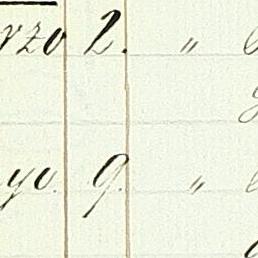 rzo 2. "
yo. 9. "